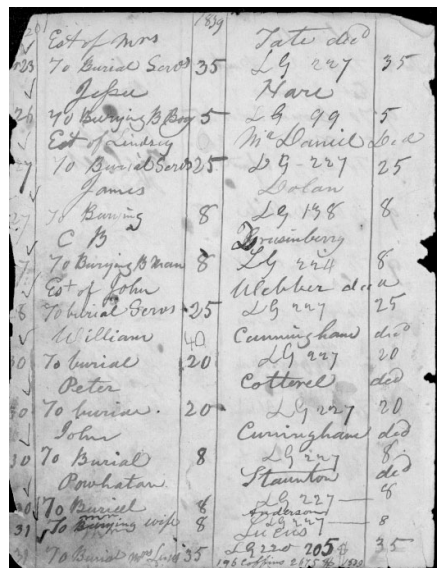 1839
Est of Mrs Tate decd
23 To Burial Servs 35 LG 227 35
Jesse Hare
26 To Burying B Boy 5 LG 99 5
Est of Lindsey McDaniel Decd
27 To Burial Servs 25 LG 227 25
James Dolan
27 To Burying 8 LG 138 8
C B
To Burying B Man 8 LG 224 8
Est of John Webber decd
28 To burial Servs 25 LG 227 25
William 40 Cunningham decd
30 To burial 20 LG 227 20
Peter Cotterel decd
30 To burial. 20 LG 227 20
John Cunningham decd
30 To Burial 8 LG 227 8
Powhatan Staunton decd
30 To Buriel 8 LG 227 — 8
Anderson
31 To Burying wife 8 LG 227 — 8
Lucus
To Burial Mrs 35 LG 220 205 35
196 Coffins 1839